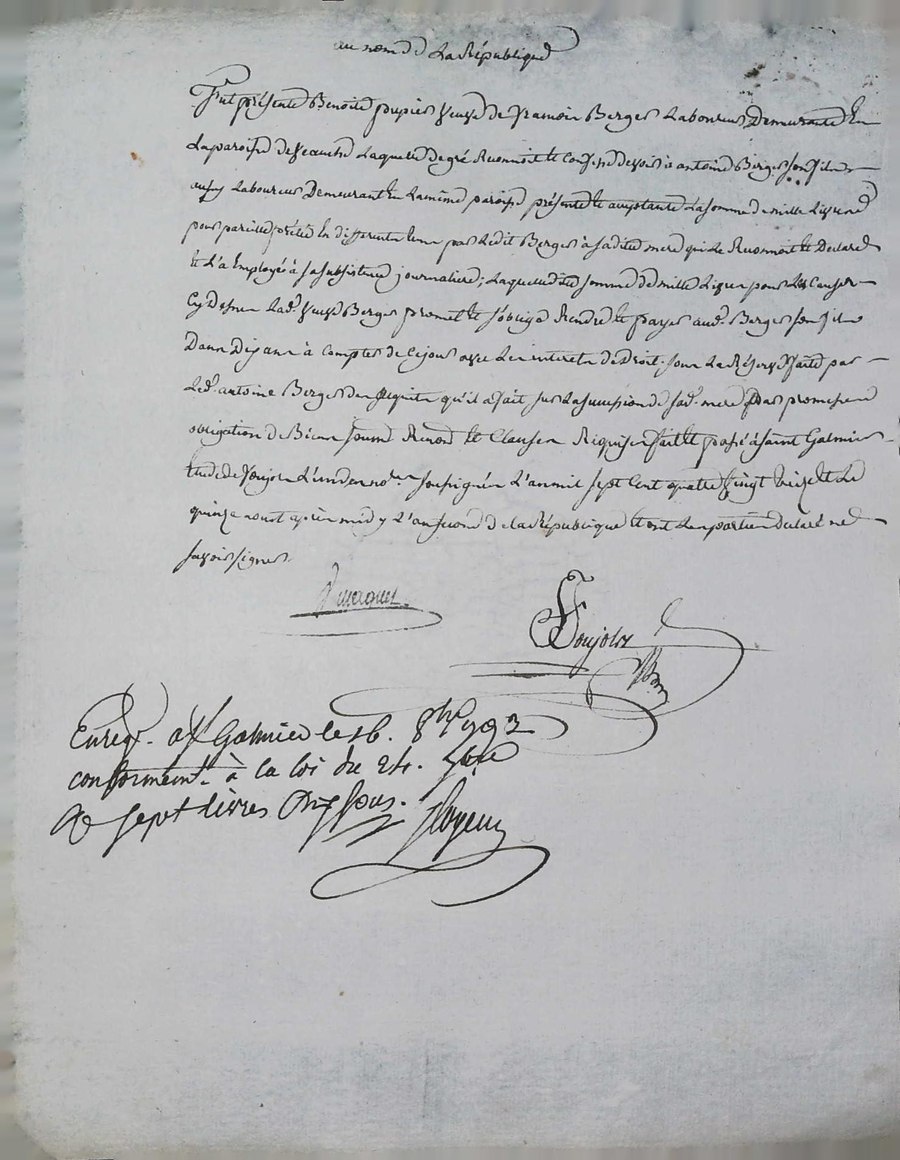 au nom de La République
Fut présente Benoite poupier veuve de francoir Berger Laboureur Demeurante En
La paroisse de veauche Laquelle de gré Reconnoit et Confesse devoir à antoine Berger son fils
aussy Laboureur Demeurant En La même paroisse présent et acceptant La somme de mille Livres
pour pareille prêtée En differents tems par Ledit Berger à sadite mere qui Le Reconnoit et Declare
et L'a Employée à sa subsistance journaliere; Laquelle dite somme de mille Livres pour Les Causes
Cy Dessus Lad.e veuve Berger promet et s'oblige Rendre et payer aud.t Berger son fils
Dans Dix ans à Compter de Ce jour avec Les interets de Droit, sous La Réserve faite par
Led.t antoine Berger des qu'il a fait sur La succession de sad.e mere par promesse
obligation de Biens soumis Renon et Clauses Requises fait et passé à saint Galmier
Etude de Soujol L'un des no.res soussignés L'an mil sept Cent quatre vingt treize et Le
quinze aoust après midy L'an second de La République et ont Les parties Declaré ne
savoir signer.
Soujol
Enreg. à st Galmier le 16. 8bre 1793
conformemt. à la loi du 24.
R sept livres Dix sous.